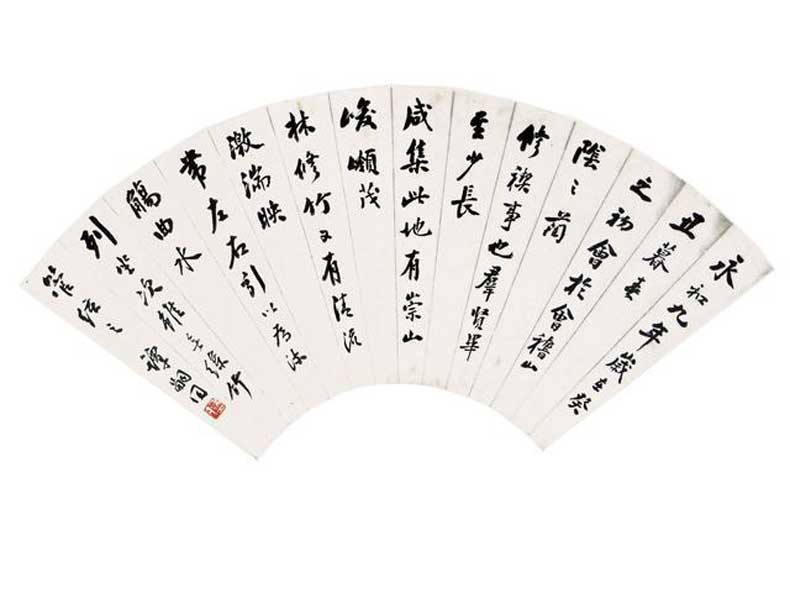 永和九年歲在癸
丑暮春
之初會於會稽山
陰之蘭
修禊事也羣賢畢
至少長
咸集此地有崇山
峻嶺茂
林修竹又有清流
激湍映
帶左右引以為流
觴曲水
列坐次雖無絲竹
管絃之
譚嗣同